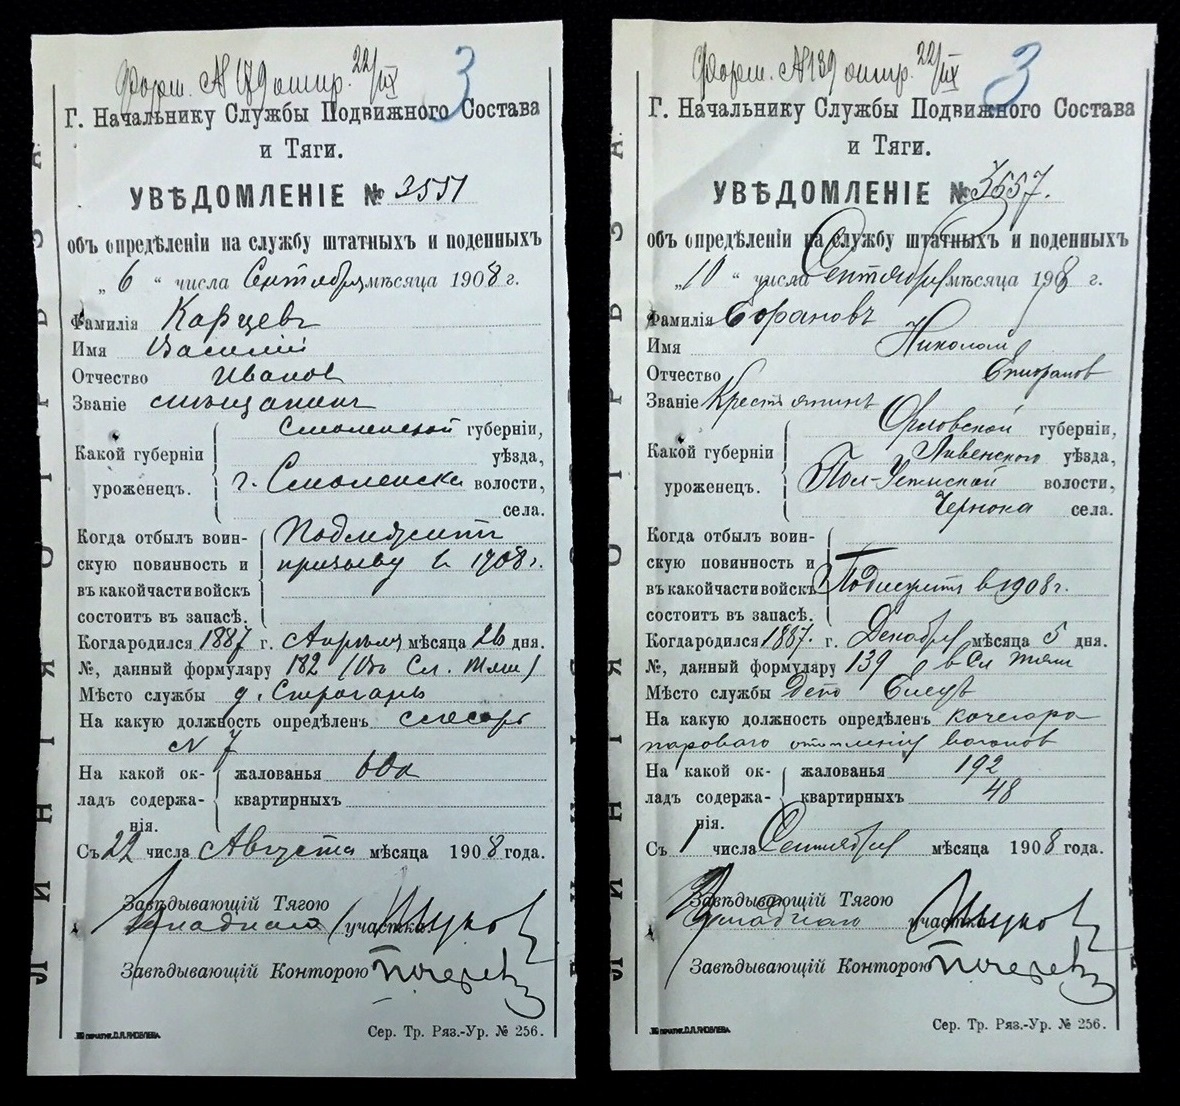 Форм. № 179 отпр. 22/IX
3
Г. Начальнику Службы Подвижного Состава
и Тяги.
УВѢДОМЛЕНІЕ № 3551
объ опредѣленіи на службу штатныхъ и поденныхъ
„ 6 “ числа Сентября мѣсяца 1908 г.
Фамилія Карцевъ
Имя Василій
Отчество Иванов
Званіе мѣщанинъ
Смоленской губерніи,
Какой губерніи уѣзда,
уроженецъ. г. Смоленска волости,
села.
Когда отбылъ воин- Подлежитъ
скую повинность и призыву в 1908 г.
въ какой части войскъ
состоитъ въ запасѣ.
Когда родился 1887 г. Апрѣля мѣсяца 26 дня.
№, данный формуляру 182 (Сл. Тяги)
Место службы
На какую должность опредѣленъ слесарь
№ 7
На какой ок- жалованья
ладъ содержа- квартирныхъ
нія.
Съ 22 числа Августа мѣсяца 1908 года.
Завѣдывающій Тягою
участка
Завѣдывающій Конторою
Сер. Тр. Ряз.-Ур. № 256.
Форм. № 139 отпр. 22/IX
3
Г. Начальнику Службы Подвижного Состава
и Тяги.
УВѢДОМЛЕНІЕ № 3557.
объ опредѣленіи на службу штатныхъ и поденныхъ
„ 10 “ числа Сентября мѣсяца 1908 г.
Фамилія
Имя Николай
Отчество
Званіе Крестьянинъ
Орловской губерніи,
Какой губерніи Ливенского уѣзда,
уроженецъ. волости,
села.
Когда отбылъ воин-
скую повинность и
въ какой части войскъ Подлежитъ в 1908 г.
состоитъ въ запасѣ.
Когда родился 1887. г. Декабря мѣсяца 5 дня.
№, данный формуляру 139 в Сл Тяги
Место службы Депо Елецъ
На какую должность опредѣленъ кочегара
парового отопленія вагонов
На какой ок- жалованья 192
ладъ содержа- квартирныхъ 48
нія.
Съ 1 числа Сентября мѣсяца 1908 года.
Завѣдывающій Тягою
участка
Завѣдывающій Конторою
Сер. Тр. Ряз.-Ур. № 256.